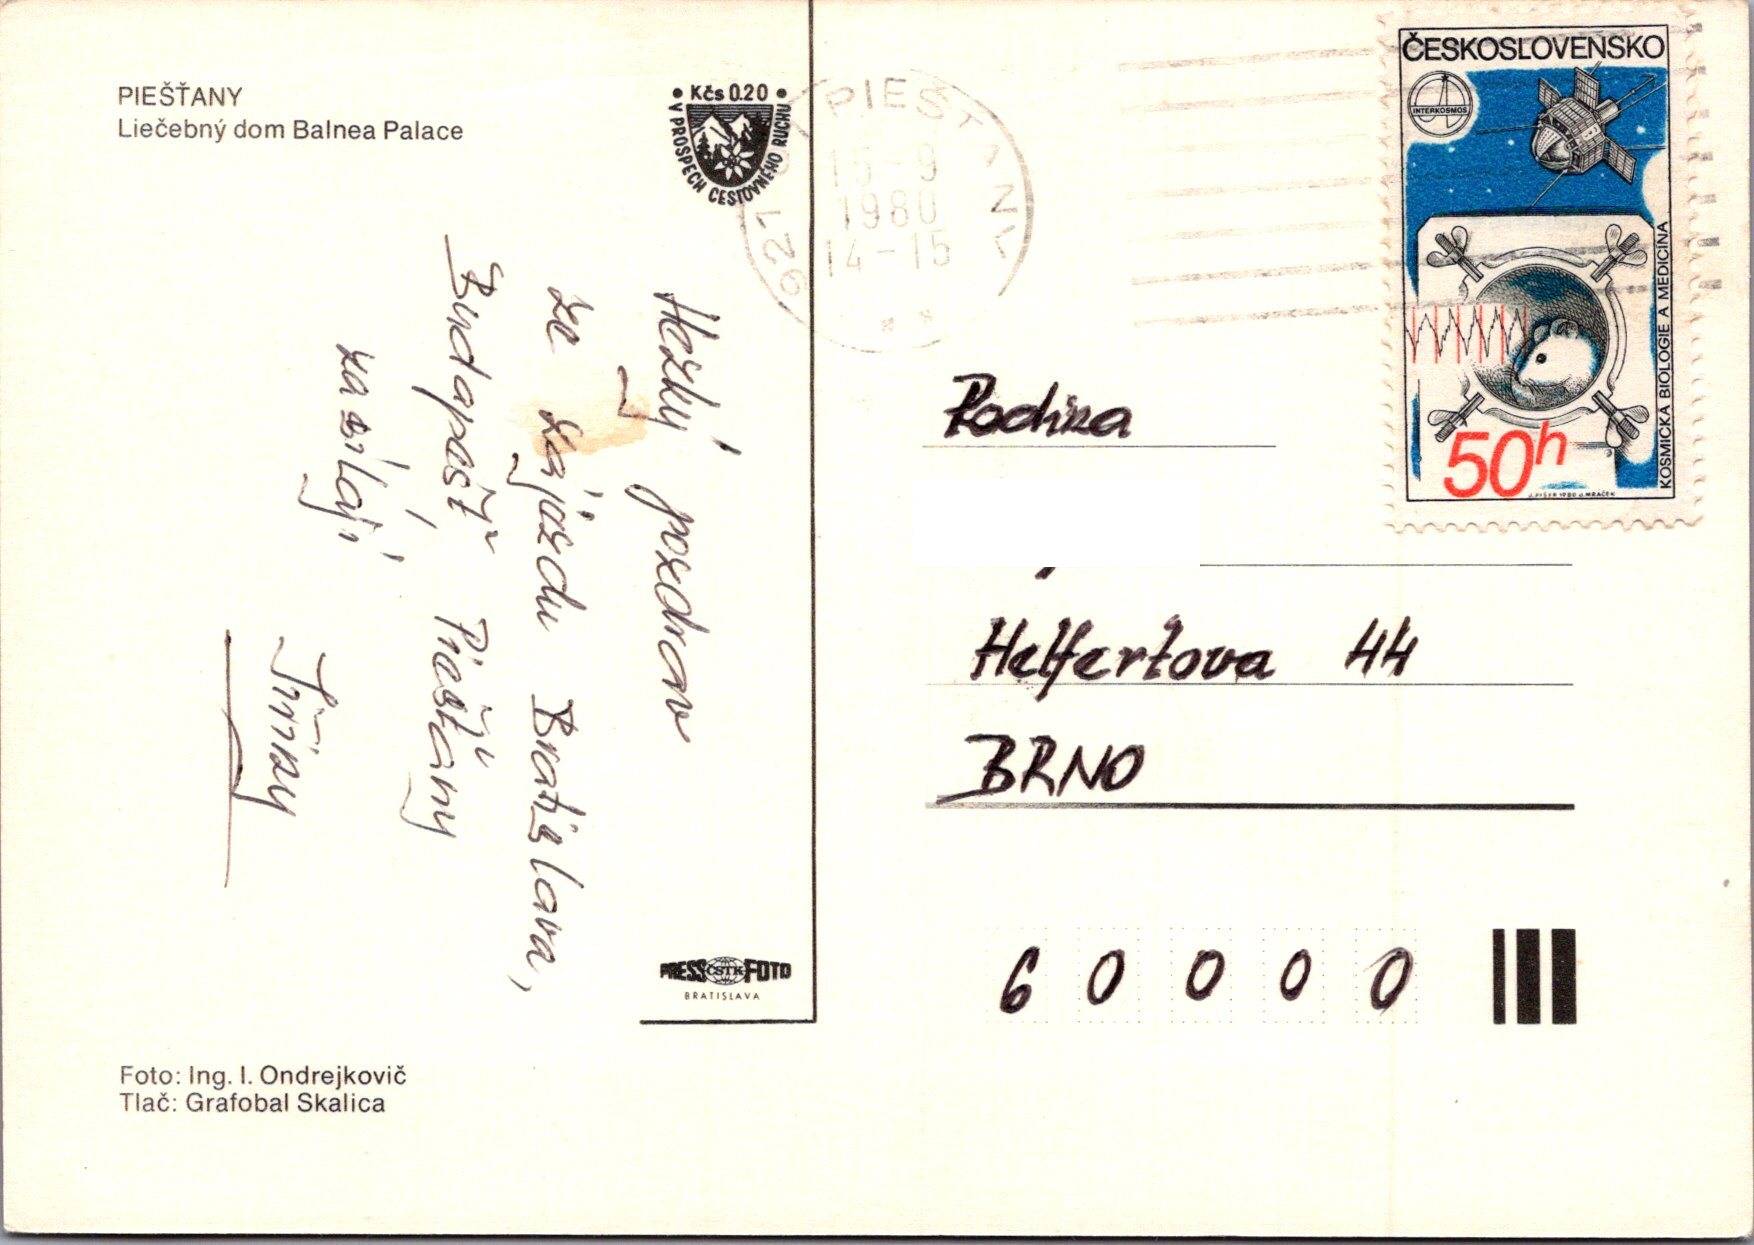 PIEŠŤANY
Liečebný dom Balnea Palace
• Kčs 0.20 •
V PROSPECH CESTOVNÉHO RUCHU
921 01 PIEŠŤANY
1980
14-15
* *
ČESKOSLOVENSKO
INTERKOSMOS
KOSMICKÁ BIOLOGIE A MEDICÍNA
50h
J. PIŠER 1980 J. MRÁČEK
Hezký pozdrav
ze zájezdu Bratislava,
Budapešť, Piešťany
zasílají
Rodina
Helfertova 44
BRNO
60000
PRESS ČSTK FOTO
BRATISLAVA
Foto: Ing. I. Ondrejkovič
Tlač: Grafobal Skalica